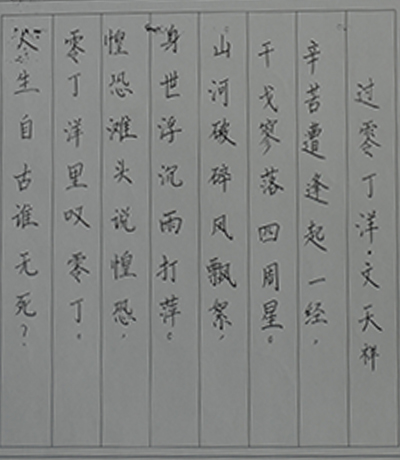 过零丁洋·文天祥
辛苦遭逢起一经，
干戈寥落四周星。
山河破碎风飘絮，
身世浮沉雨打萍。
惶恐滩头说惶恐，
零丁洋里叹零丁。
人生自古谁无死？